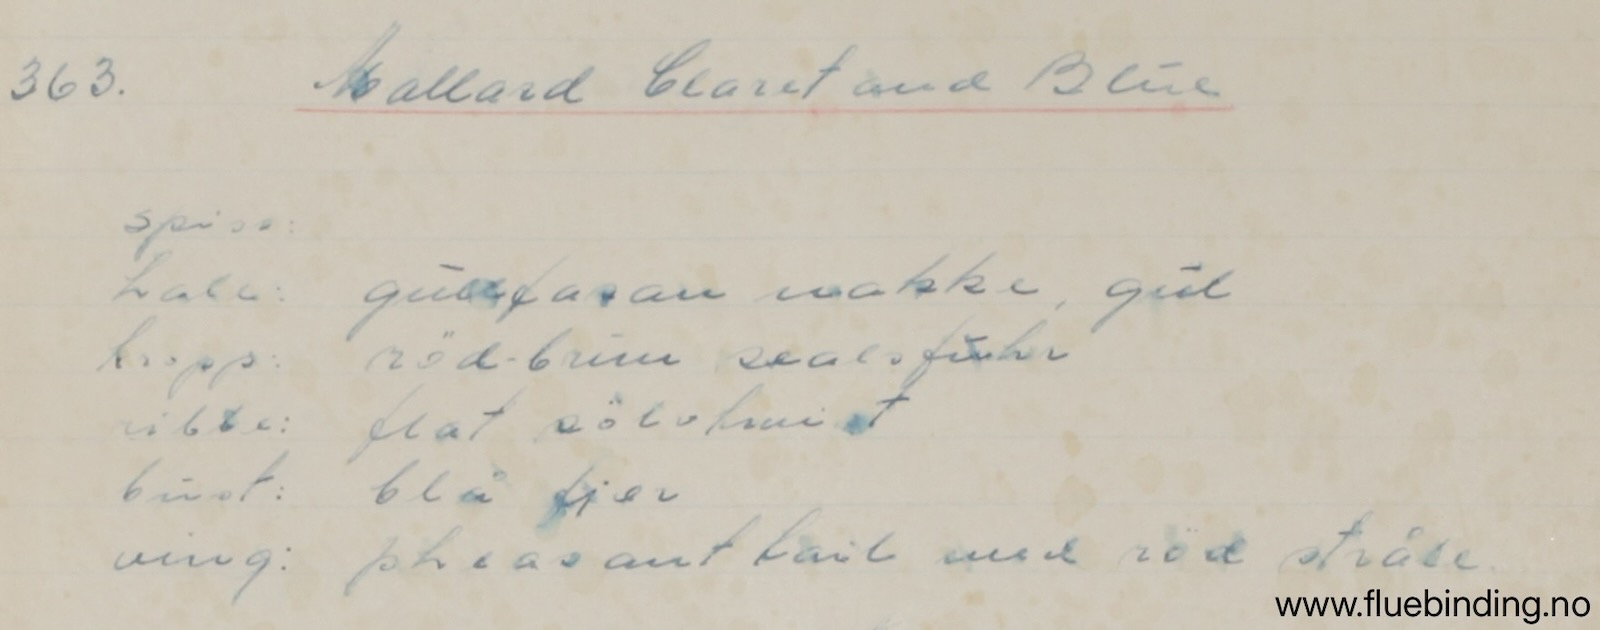 363. Mallard Claret and Blue
spiss:
hale: gullfasan nakke, gul
kropp: röd-brun sealsfuhr
ribbe: flat sölvtwist
bust: blå fjer
ving: pheasant tail med röd stråle.
www.fluebinding.no